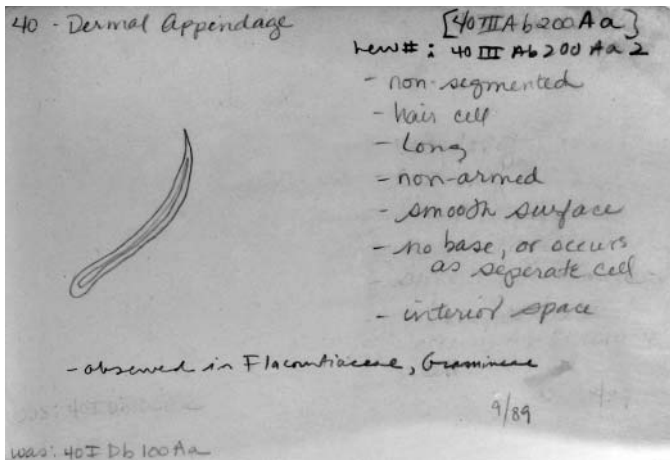 40 - Dermal Appendage
[40 III Ab 200 Aa]
new #: 40 III Ab 200 Aa 2
- non-segmented
- hair cell
- Long
- non-armed
- smooth surface
- no base, or occurs
as seperate cell
- interior space
- observed in Flacourtiaceae, Gramineae
9/89
was: 40 I Db 100 Aa